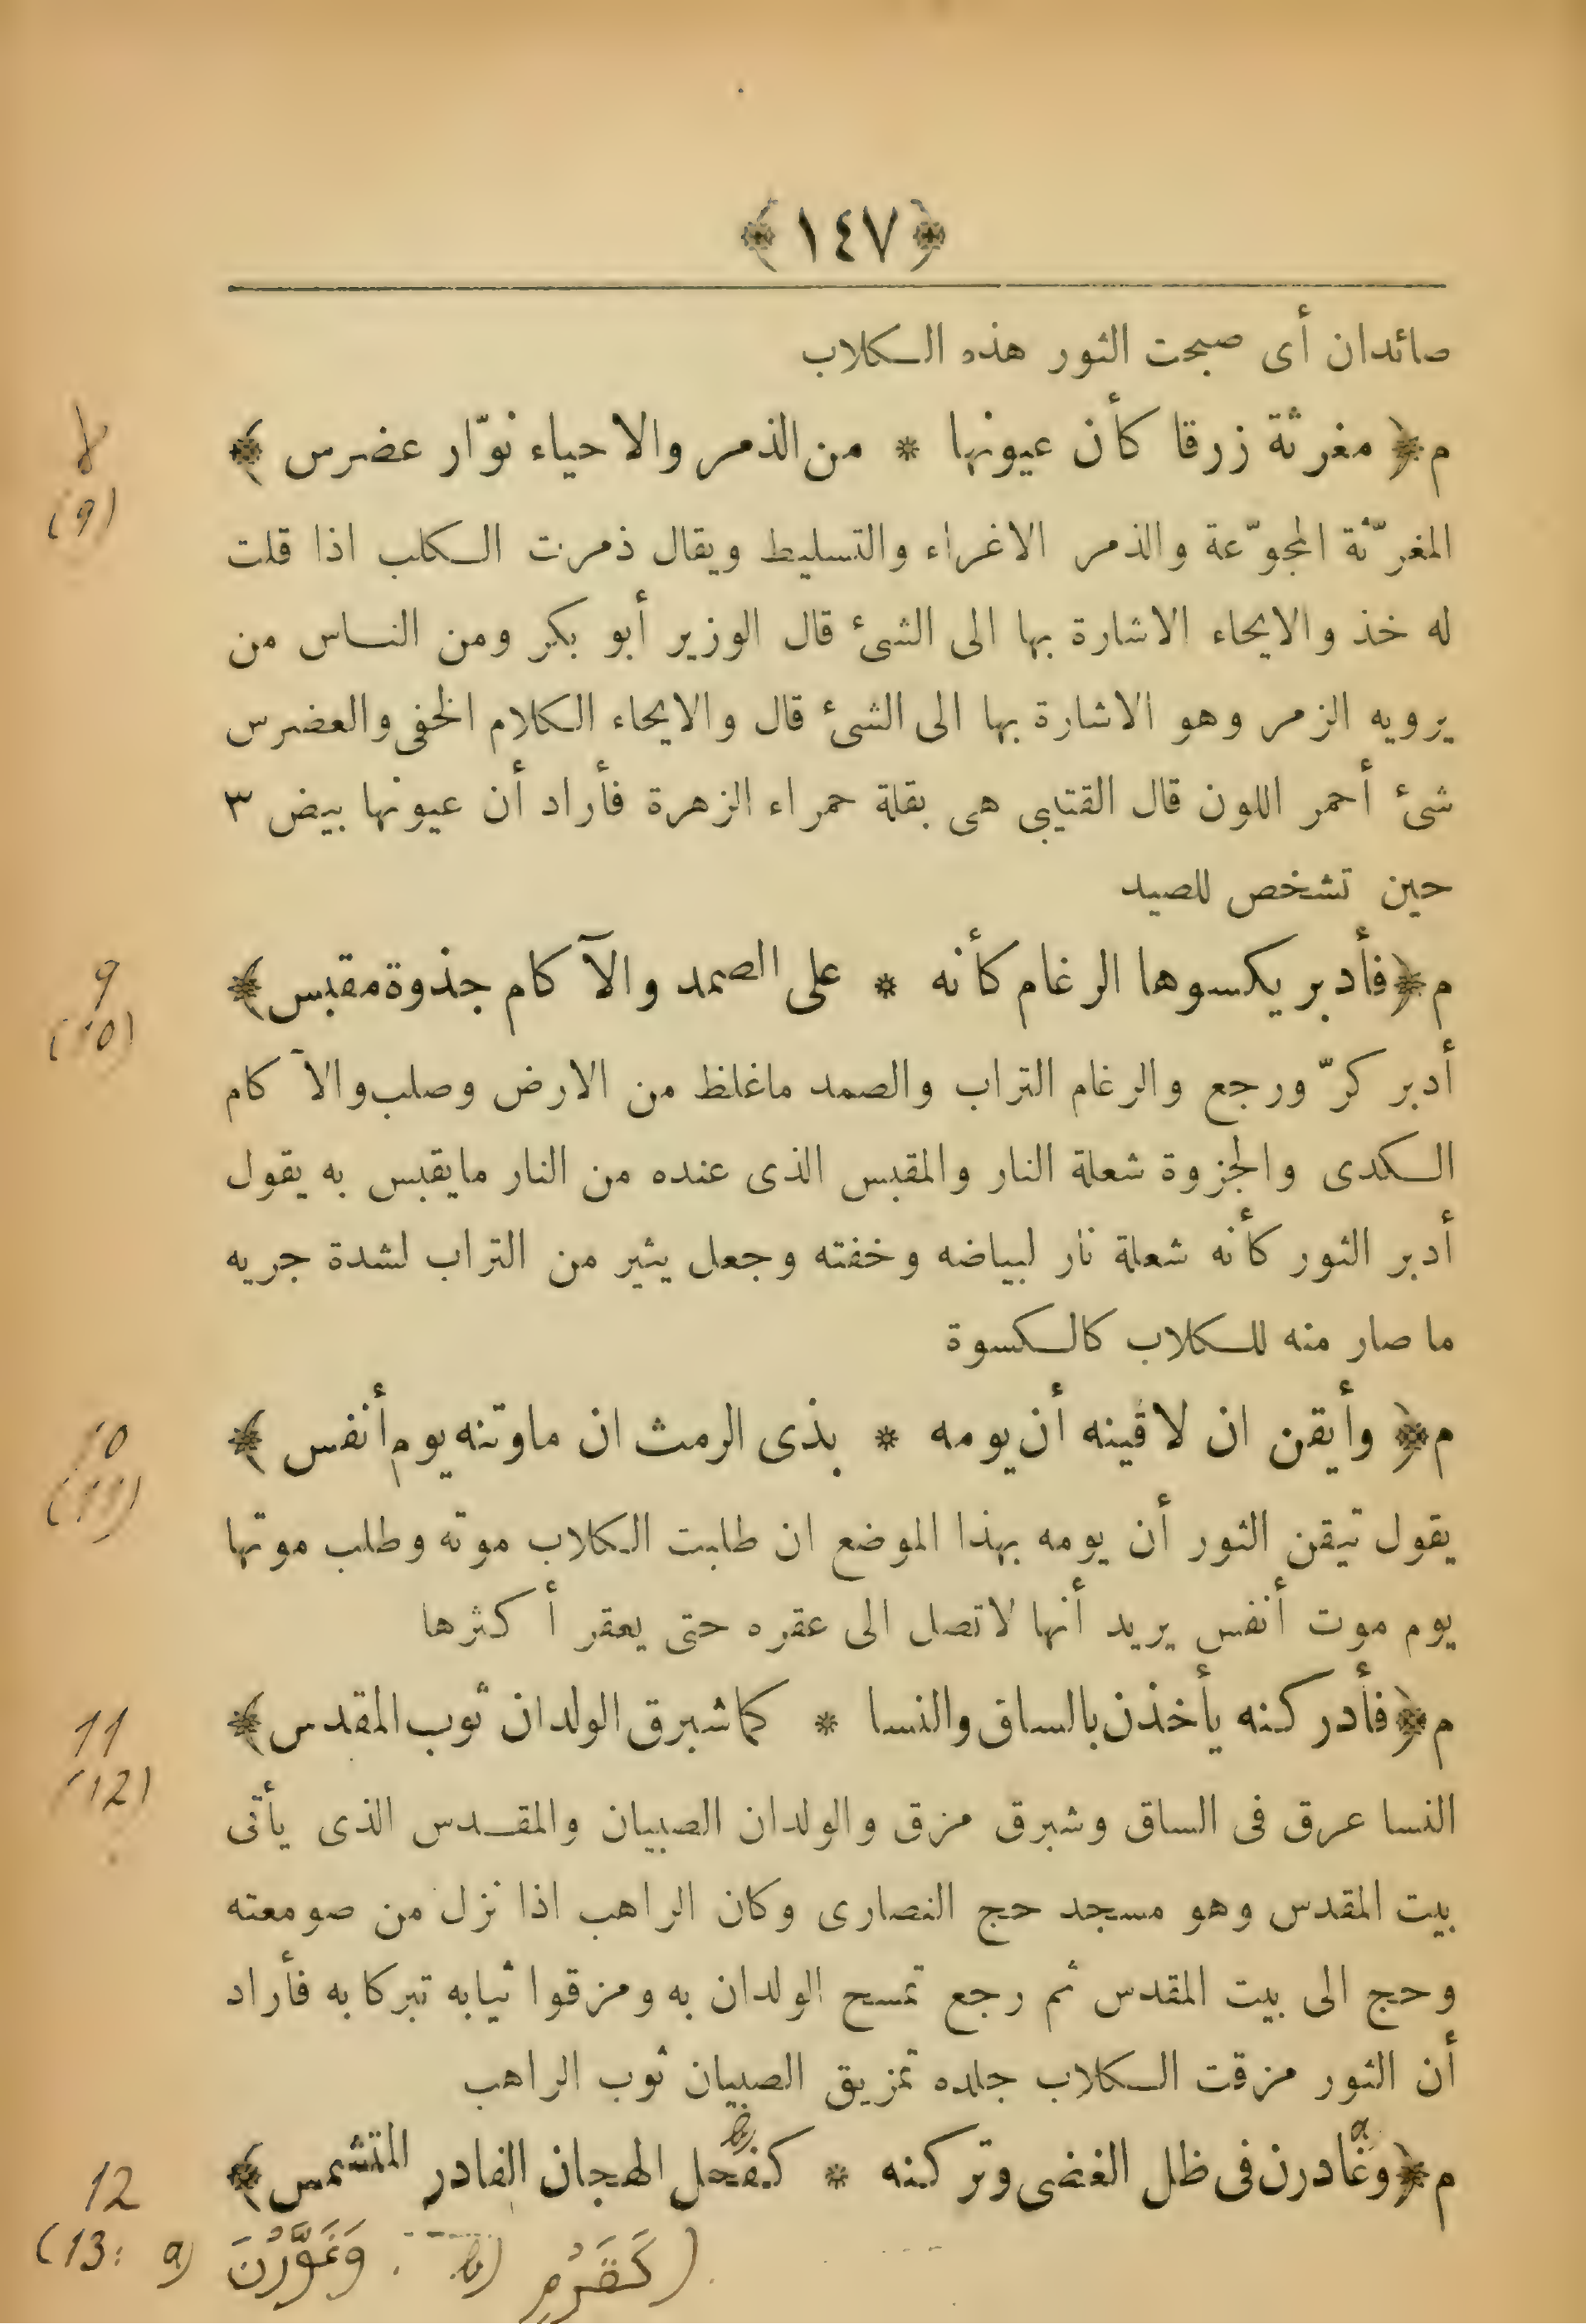 ﴿١٤٧﴾
صائدان أى صبحت الثور هذه الكلاب
م﴿ مغرثة زرقا كأن عيونها * من الذمر والاحياء نوّار عضرس ﴾
المغرّثة المجوّعة والذمر الاغراء والتسليط ويقال ذمرت الكلب اذا قلت
له خذ والايحاء الاشارة بها الى الشئ قال الوزير أبو بكر ومن الناس من
يرويه الزمر وهو الاشارة بها الى الشئ قال والايحاء الكلام الخفى والعضرس
شئ أحمر اللون قال القتابى هى بقلة حمراء الزهرة فأراد أن عيونها بيض ٣
حين تشخص للصيد
م﴿فأدبر يكسوها الرغام كأنه * على الصمد والآكام جذوة مقبس﴾
أدبر كرّ ورجع والرغام التراب والصمد ماغلظ من الارض وصلب والآكام
الكدى والجزوة شعلة النار والمقبس الذى عنده من النار مايقبس به يقول
أدبر الثور كأنه شعلة نار لبياضه وخفته وجعل يثير من التراب لشدة جريه
ما صار منه للكلاب كالكسوة
م﴿ وأيقن ان لاقينه أن يومه * بذى الرمث ان ماوتنه يوم أنفس ﴾
يقول تيقن الثور أن يومه بهذا الموضع ان طلبت الكلاب موته وطلب موتها
يوم موت أنفس يريد أنها لاتصل الى عقره حتى يعقر أكثرها
م﴿فأدركنه يأخذن بالساق والنسا * كما شبرق الولدان ثوب المقدس﴾
النسا عرق فى الساق وشبرق مزق والولدان الصبيان والمقدس الذى يأتى
بيت المقدس وهو مسجد حج النصارى وكان الراهب اذا نزل من صومعته
وحج الى بيت المقدس ثم رجع تمسح الولدان به ومزقوا ثيابه تبركا به فأراد
أن الثور مزقت الكلاب جلده تمزيق الصبيان ثوب الراهب
م﴿وغادرن فى ظل الغضى وتركنه * كفحل الهجان الفادر المتشمس﴾
8
(9)
9
(10)
10
(11)
11
(12)
12
(13: a) وَغَوَّرْنَ . b) كَقَرْمِ)